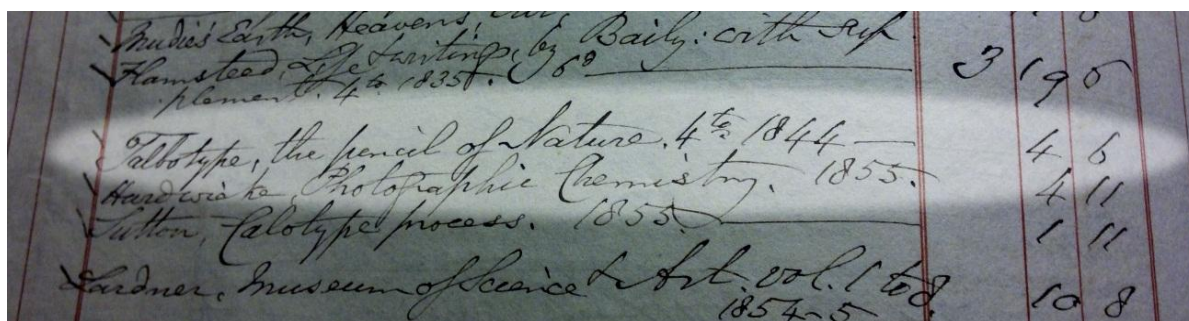 Mudie's Earth, Heavens,
Flamsteed, Life & writings, by Baily: with sup-
plement. 4to 1835. 3 19 6
Talbotype, the pencil of Nature. 4to 1844 — 4 6
Hardwicke, Photographic Chemistry. 1855. 4 11
Sutton, Calotype process. 1855. — 1 11
Lardner, Museum of Science & Art. vol. 1 to 8. 10 8
1854-5